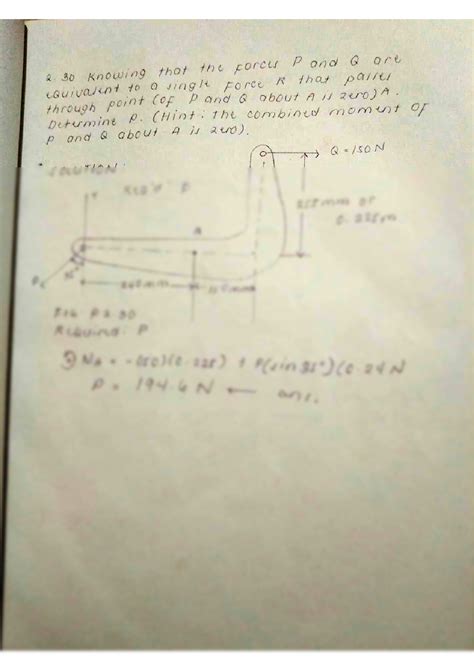 2.30 Knowing that the forces P and Q are
equivalent to a single force R that passes
through point (of P and Q about A is zero) A.
Determine P. (Hint: the combined moment of
P and Q about A is zero).
SOLUTION:
Q = 150 N
A
225 mm or
0.225 m
240 mm
Fig. P 2.30
Required: P
(0.225) + P(sin
P = 194.6 N ← ans.